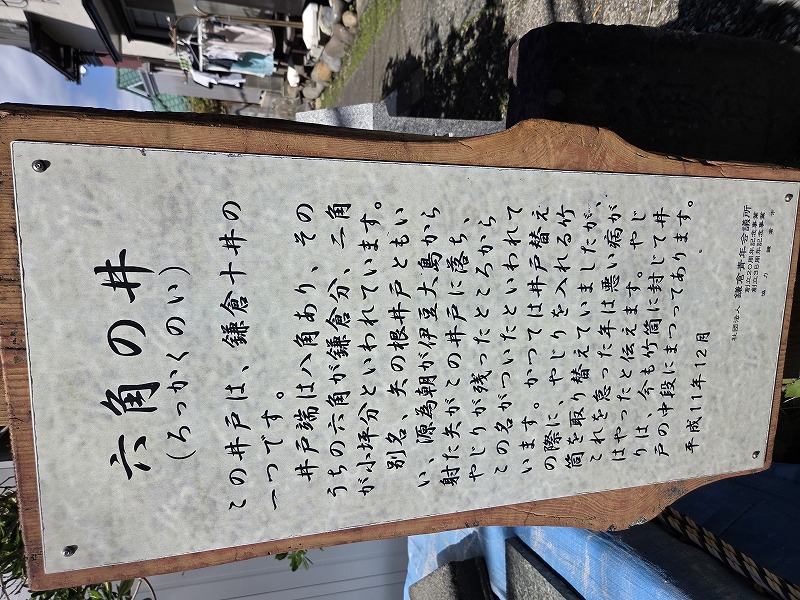 六角の井
(ろっかくのい)
この井戸は、鎌倉十井の
一つです。
井戸端は八角あり、その
うちの六角が鎌倉分、二角
が小坪分といわれています。
別名、矢の根井戸ともい
い、源為朝が伊豆大島から
射た矢がこの井戸に落ち、
やじりが残ったところから
この名がついたといわれて
います。かつては井戸替え
の際に、やじりを入れる竹
筒を取り替えていましたが、
これを怠った年は悪い病が
はやったと伝えます。やじ
りは、今も竹筒に封じて井
戸の中段にまつってあります。
平成11年12月
社団法人 鎌倉青年会議所
創立20周年記念事業
創立35周年記念事業
協力 鎌倉市